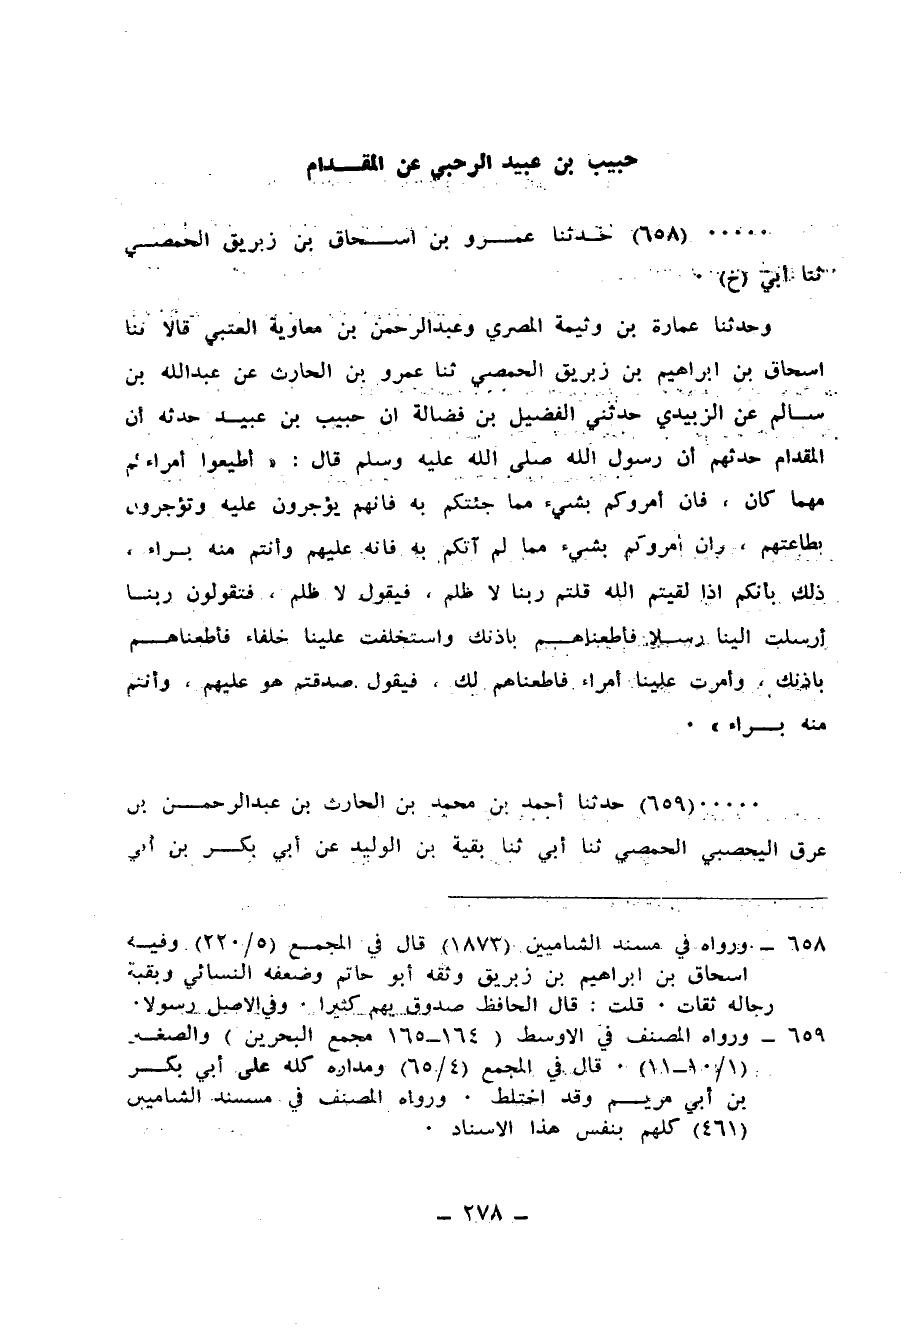 حبيب بن عبيد الرحبي عن المقـــدام
٠٠٠٠٠ (٦٥٨) حـدثنا عمـــرو بن اســـحاق بن زبريق الحمصـــي
ثنا أبي (خ) ٠
وحدثنا عمارة بن وثيمة المصري وعبدالرحمن بن معاوية العتبي قالا ثنا
اسحاق بن ابراهيم بن زبريق الحمصي ثنا عمرو بن الحارث عن عبدالله بن
ســالم عن الزبيدي حدثني الفضيل بن فضالة ان حبيب بن عبيــد حدثه أن
المقدام حدثهم أن رسول الله صلى الله عليه وسلم قال : « أطيعوا أمراءكم
مهما كان ، فان أمروكم بشيء مما جئتكم به فانهم يؤجرون عليه وتؤجرون
بطاعتهم ، وان أمروكم بشيء مما لم آتكم به فانه عليهم وأنتم منه بــراء ،
ذلك بأنكم اذا لقيتم الله قلتم ربنا لا ظلم ، فيقول لا ظلم ، فتقولون ربنــا
أرسلت الينا رســلا فأطعناهــم باذنك واستخلفت علينا خلفاء فأطعناهـــم
باذنك ، وأمرت علينا أمراء فاطعناهم لك ، فيقول صدقتم هو عليهم ، وأنتم
منه بـــراء » ٠
٠٠٠٠٠(٦٥٩) حدثنا أحمد بن محمد بن الحارث بن عبدالرحمـــن بن
عرق اليحصبي الحمصي ثنا أبي ثنا بقية بن الوليد عن أبي بكـــر بن أبي
٦٥٨ ــ ورواه في مسند الشاميين (١٨٧٣) قال في المجمــع (٢٢٠/٥) وفيــه
اسحاق بن ابراهيم بن زبريق وثقه أبو حاتم وضعفه النسائي وبقية
رجاله ثقات ٠ قلت : قال الحافظ صدوق يهم كثيرا ٠ وفي الاصل رسولا ٠
٦٥٩ ــ ورواه المصنف في الاوسط ( ١٦٤ــ١٦٥ مجمع البحرين ) والصغيــر
(١٠/١ــ١١) ٠ قال في المجمع (٦٥/٤) ومداره كله على أبي بكـــر
بن أبي مريـــم وقد اختلط ٠ ورواه المصنف في مسـند الشاميين
(٤٦١) كلهم بنفس هذا الاسناد ٠
ــ ٢٧٨ ــ